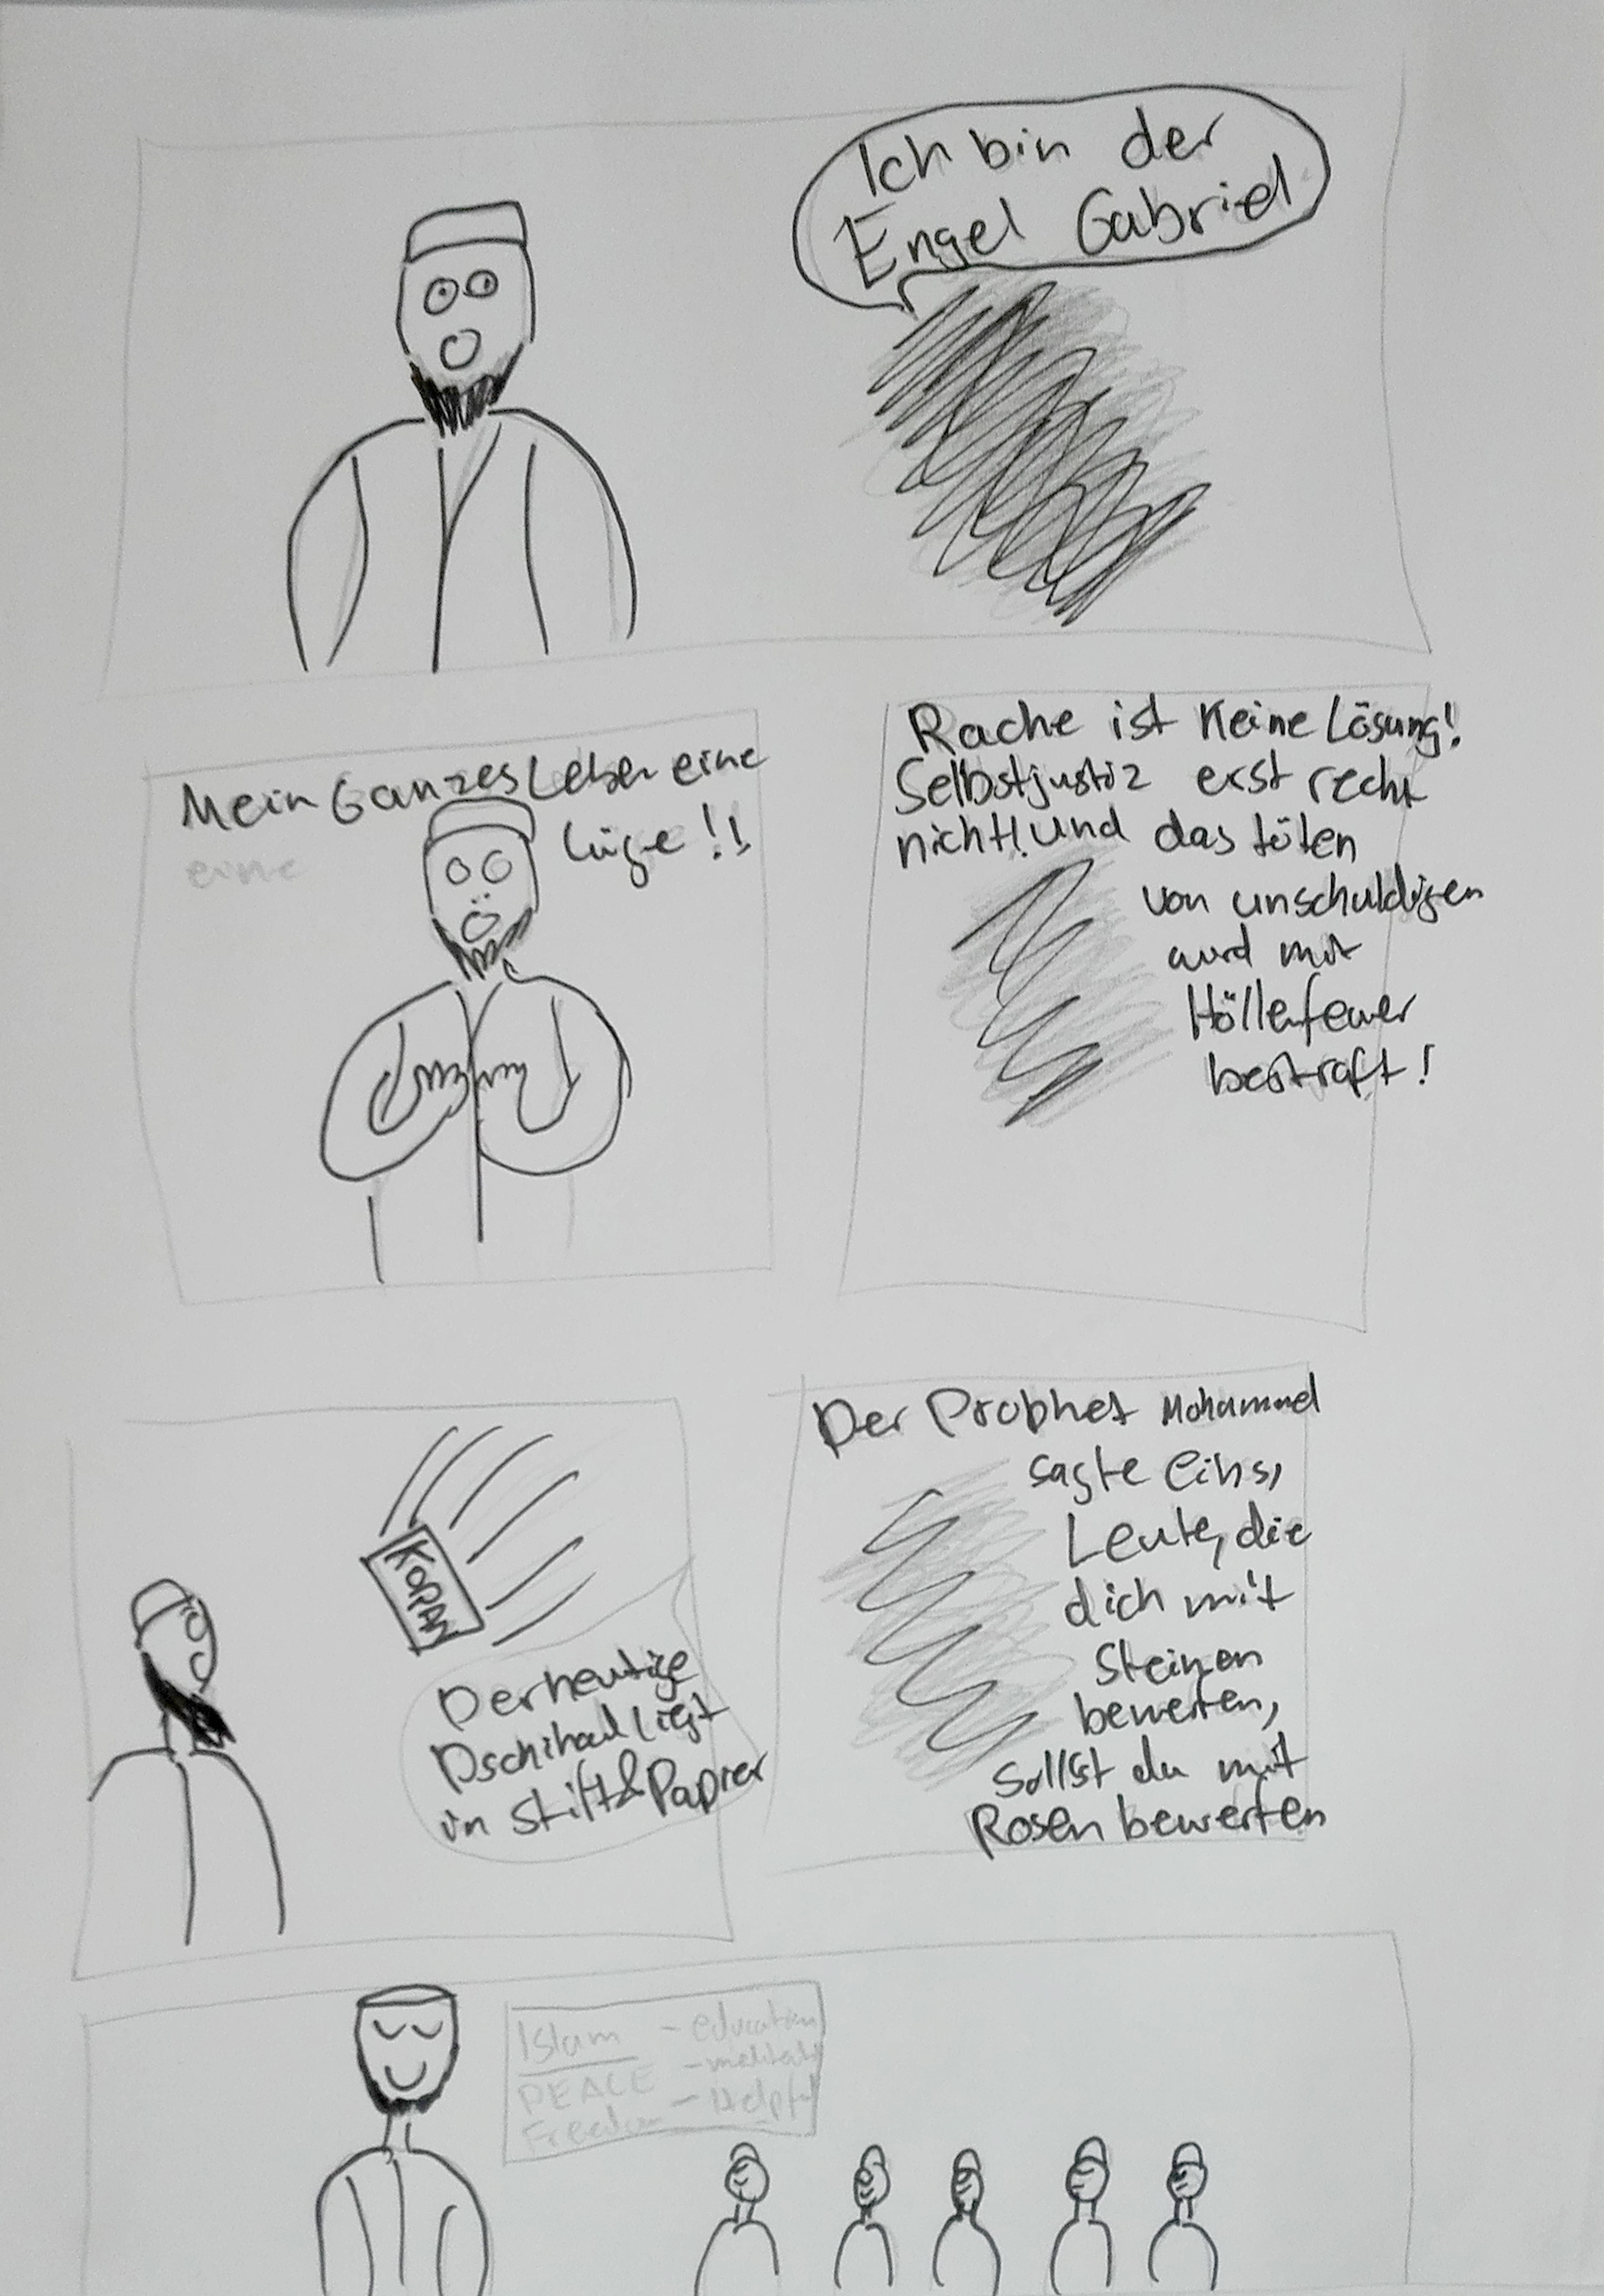 Ich bin der
Engel Gabriel
Mein Ganzes Leben eine
eine
Lüge!!
Rache ist Keine Lösung!
Selbstjustiz erst recht
nicht! Und das töten
von unschuldigen
wird mit
Höllenfeuer
bestraft!
KORAN
Der heutige
Dschihad liegt
in Stift & Papier
Der Prophet Mohammed
sagte eins,
Leute, die
dich mit
Steinen
bewerfen,
Sollst du mit
Rosen bewerfen
Islam - education
PEACE
Freedom - Helpful